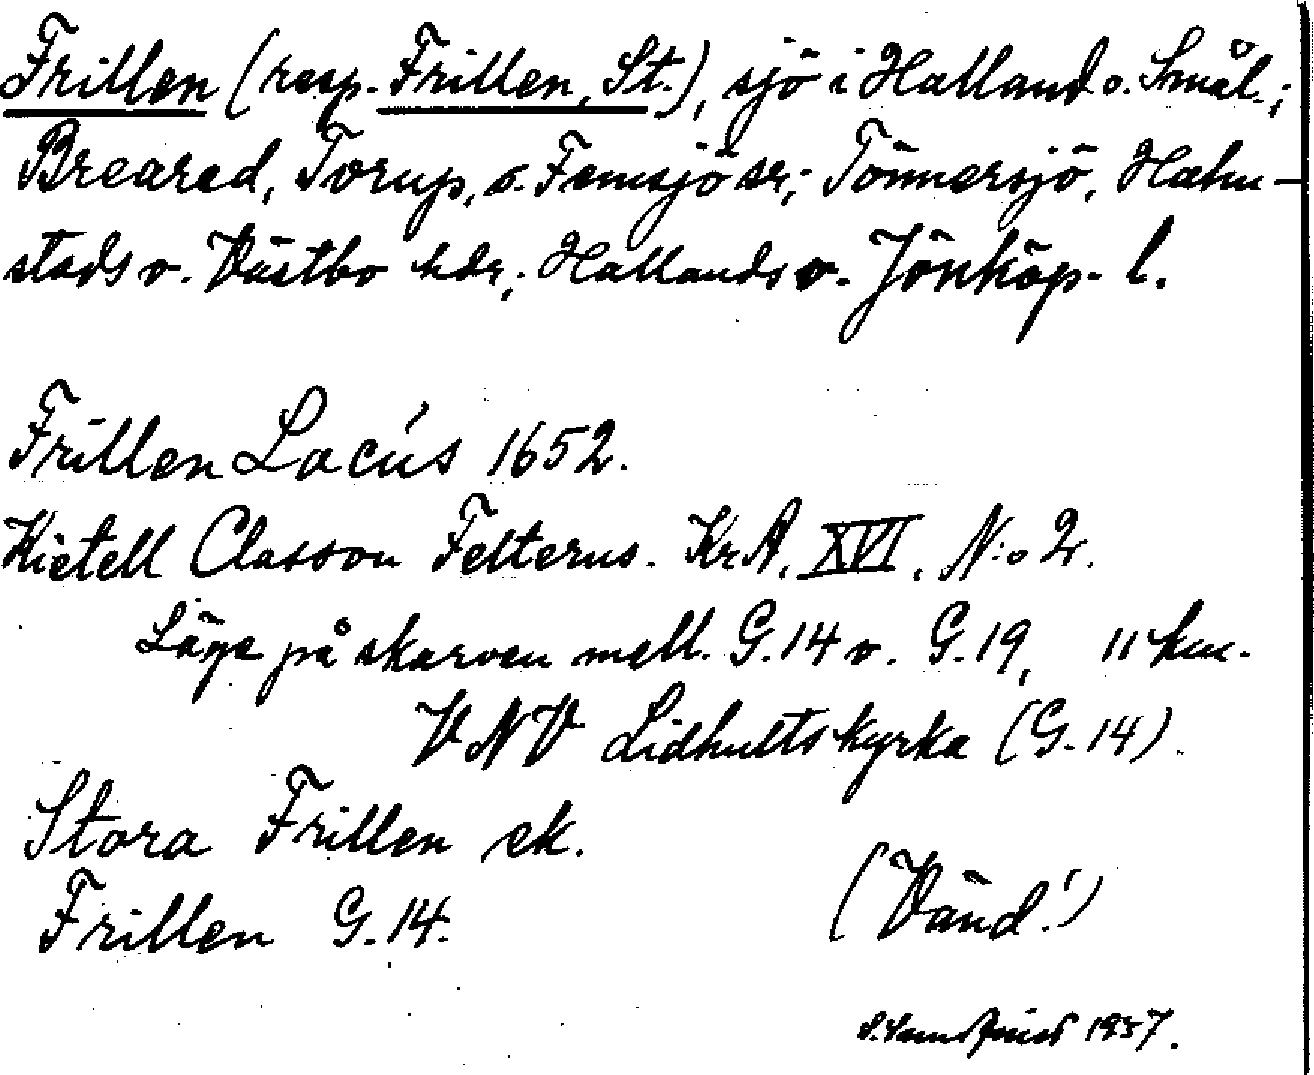 Frillen (resp. Frillen, St.), sjö i Halland o. Smål.;
Breared, Torup, o. Femsjö snr; Tönnersjö, Halm-
stads o. Västbo hdr; Hallands o. Jönköp. l.
Frillen Lacús 1652.
Kietell Classon Felterus. KrA, XVI, N:o 2.
Läge på skarven mell. G.14 o. G.19, 11 km.
VNV Lidhults kyrka (G.14).
Stora Frillen ek.
Frillen G.14.
(Vänd!)
1937.